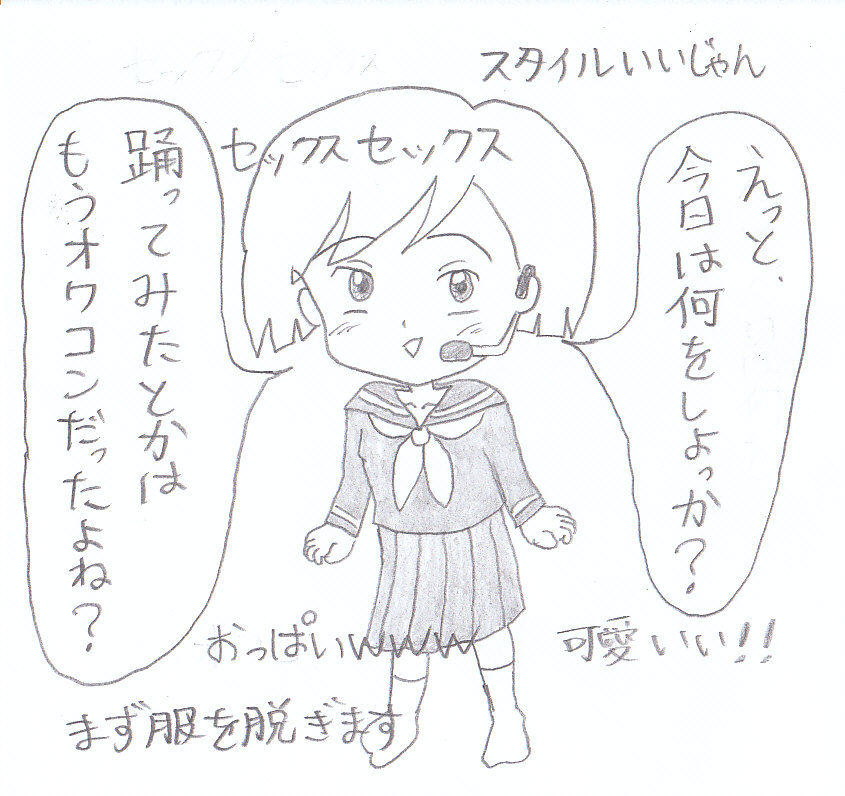 スタイルいいじゃん
セックスセックス
えっと、
今日は何をしよっか？
踊ってみたとかは
もうオワコンだったよね？
おっぱいwww
可愛いい!!
まず服を脱ぎます